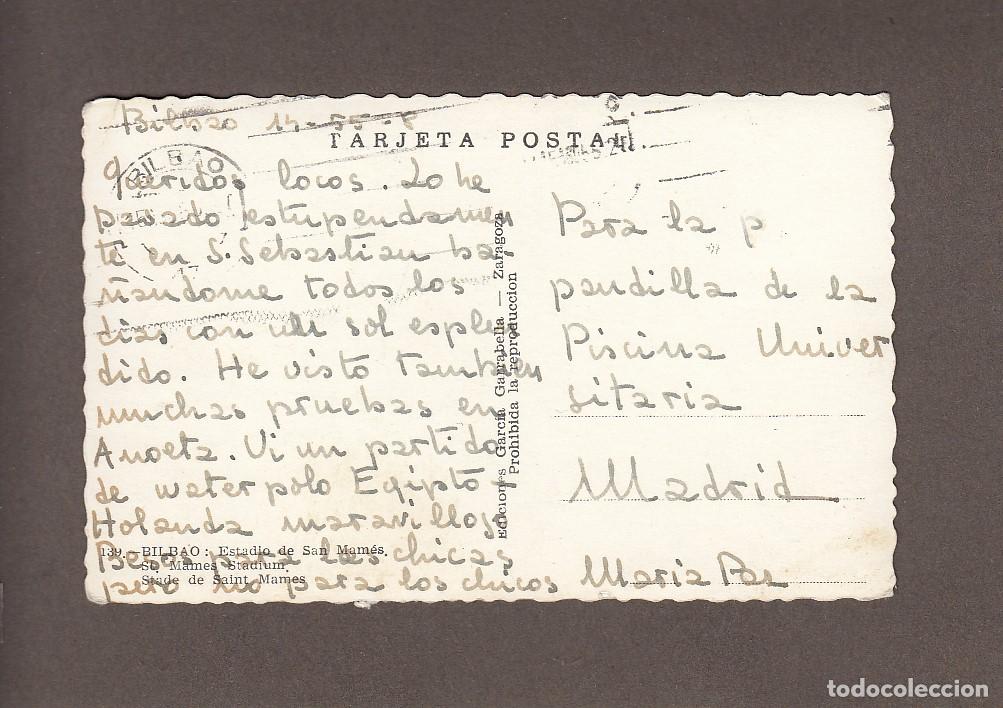 Bilbao 14-55-8
TARJETA POSTAL.
BILBAO
Queridos locos. Lo he
pasado estupendamen
te en S. Sebastian ba-
ñandome todos los
dias con un sol esplen
dido. He visto tambien
muchas pruebas en
Anoeta. Vi un partido
de water polo Egipto-
Holanda maravilloso
Besos para las chicas
pero no para los chicos
139.-BILBAO: Estadio de San Mamés.
St. Mames Stadium.
Stade de Saint Mames
Ediciones García Garrabella — Zaragoza
Prohibida la reproduccion
Para la p
pandilla de la
Piscina Univer
sitaria
Madrid
Maria Paz
todocoleccion